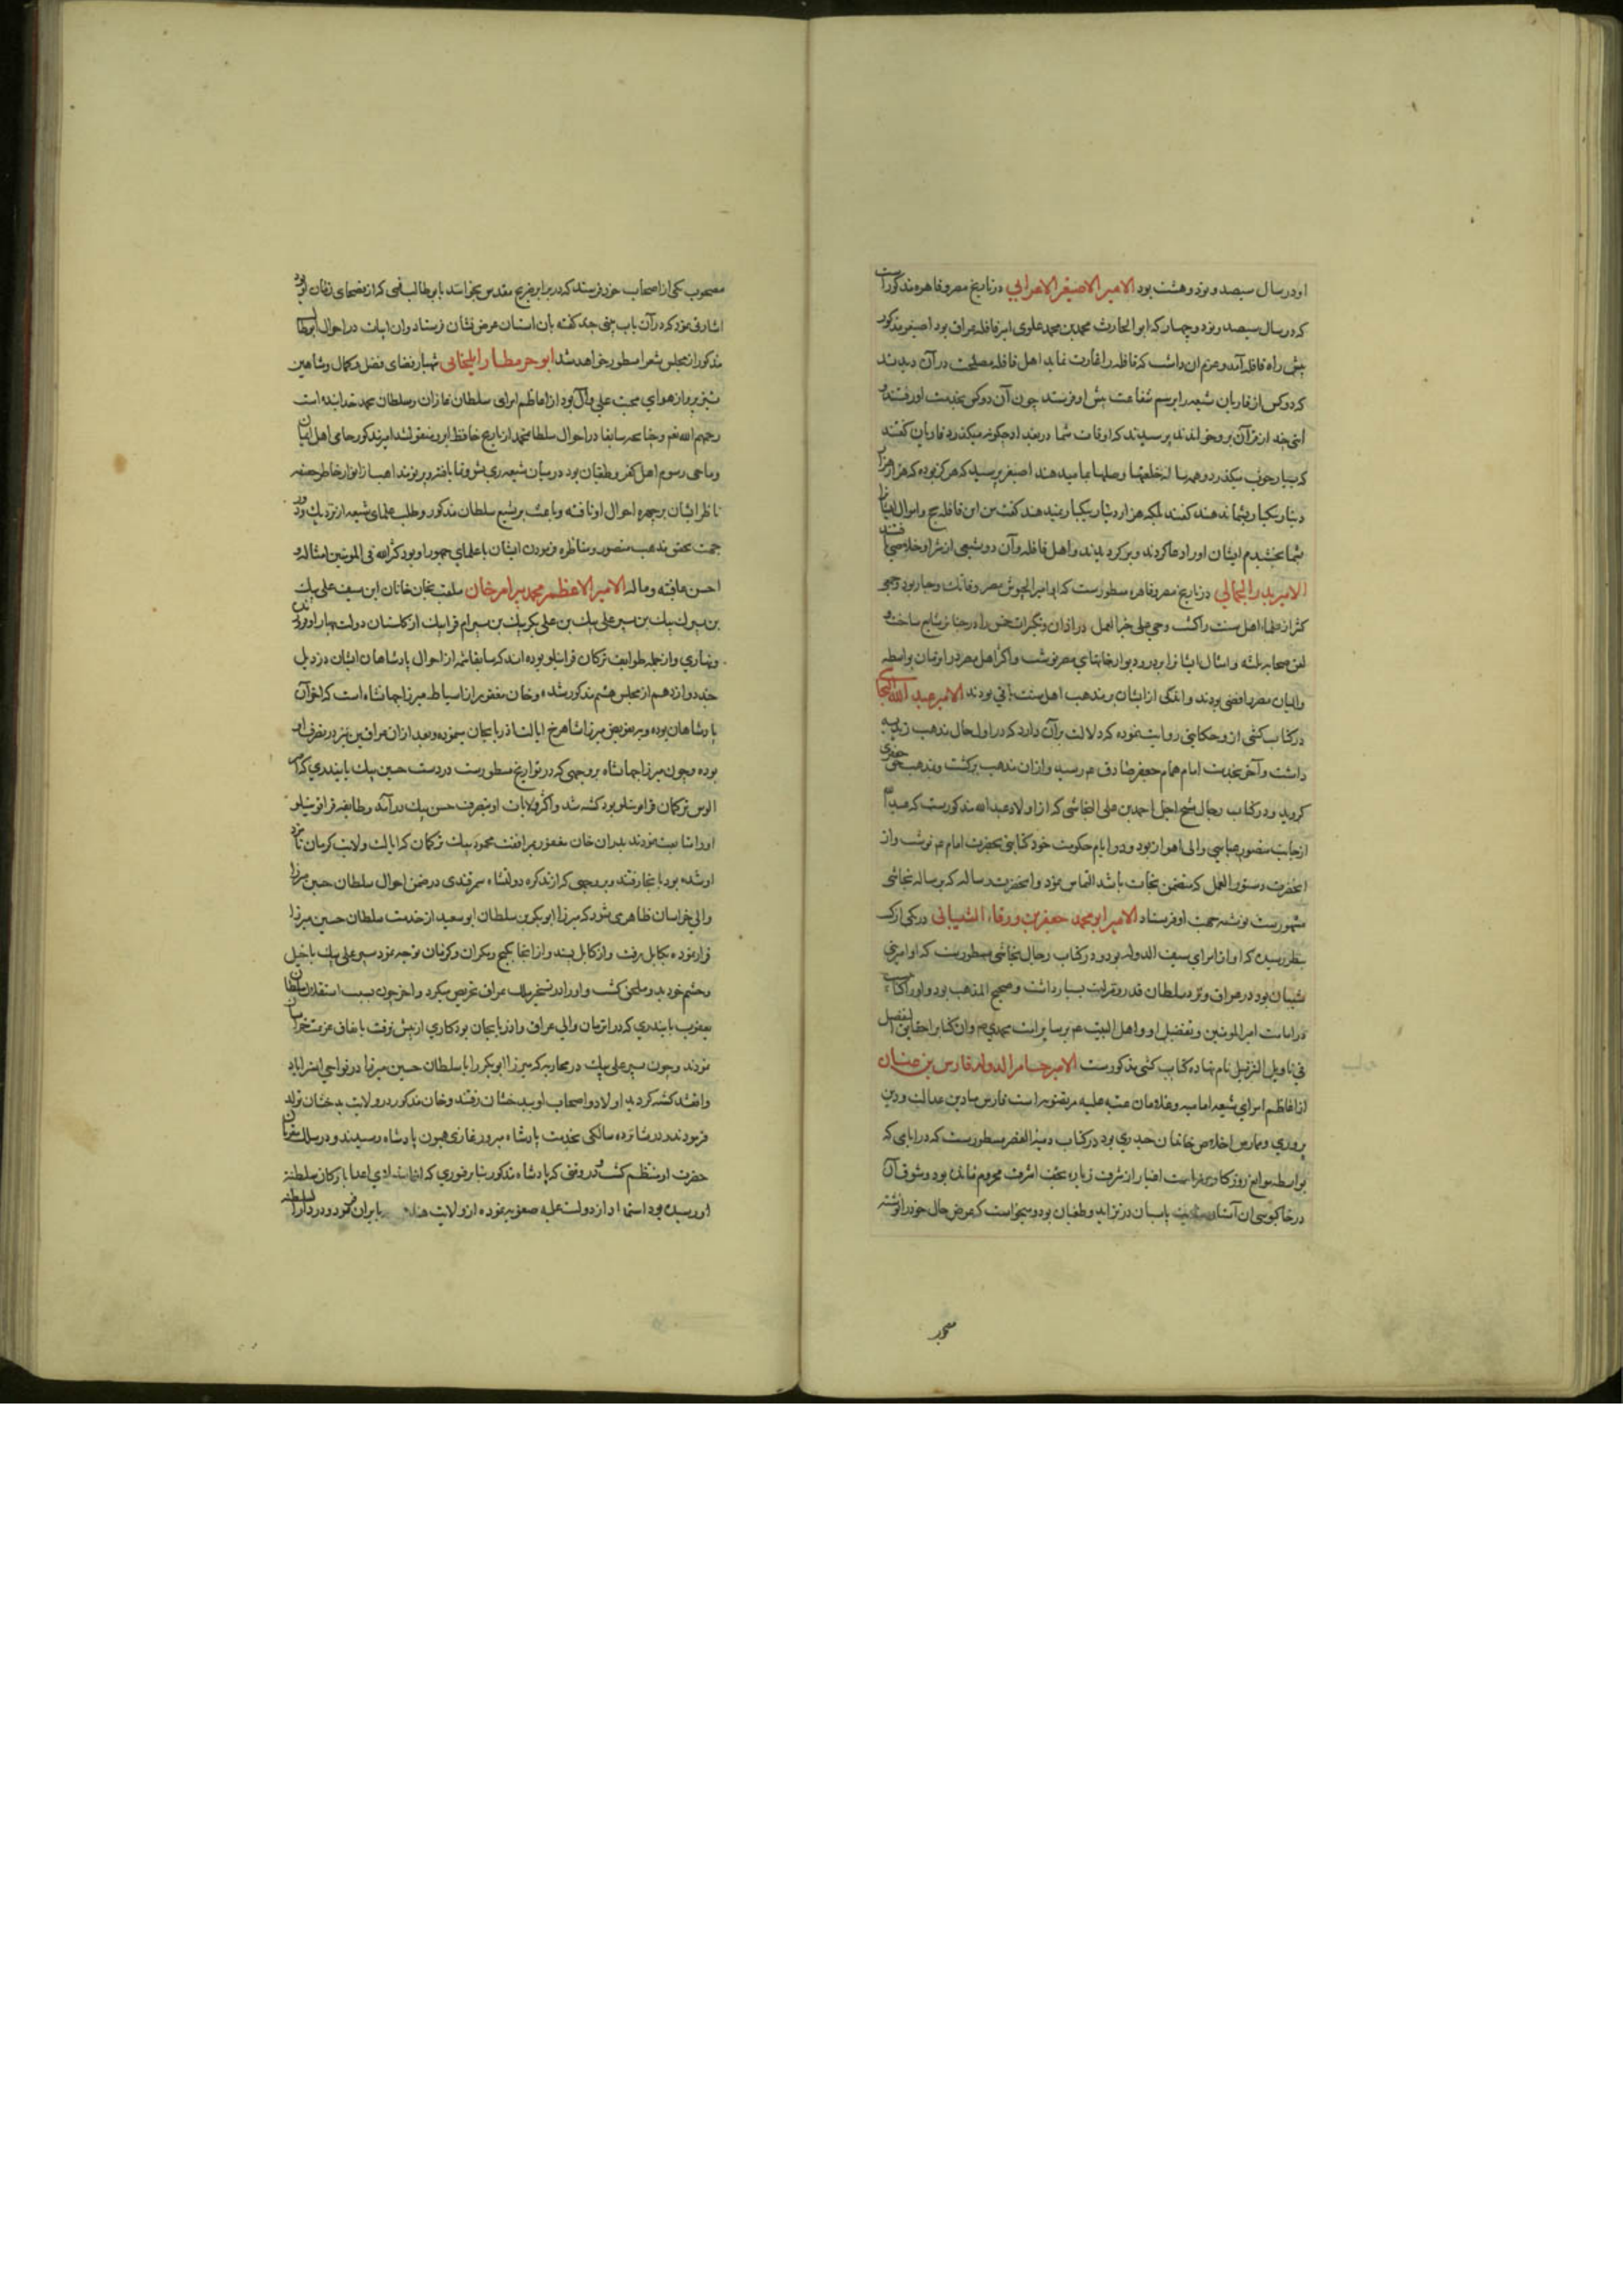 او در سال سیصد و نود و هشت بود الامیر الاصیغر الاعرابی در تاریخ مصر و قاهره مذکور است
که در سال سیصد و نود و چهار که ابو الحارث محمد بن محمد علوی امیر قافله عراق بود اصیغر مذکور
پیش راه قافله آمد و عزم آن داشت که قافله را غارت نماید اهل قافله مصلحت در آن دیدند
که دو کس از قاریان شیعه را برسم شفاعت پیش او فرستند چون آن دو کس بخدمت او رفتند و
آیتی چند از قرآن برو خواندند پرسیدند که اوقات شما در بغداد چگونه میگذرد قاریان گفتند
که بسیار خوب میگذرد و همه ساله خلعتها و صلها بما میدهند اصیغر پرسید که هرگز بوده که هزار هزار
دینار یکبار بشما بدهند گفتند بلکه هزار دینار یکبار نمیدهند گفت من این قافله حج و اموال ایشان
شما بخشیدم ایشان او را دعا کردند و برگردیدند و اهل قافله و آن دو شیعی از شر او خلاصی یافتند
الامیر بدر الجمالی در تاریخ مصر و قاهره مسطورست که او امیر الجیوش مصر و فاتک و جبار بود و جمعی
کثیر از علماء اهل سنت را کشت و حی علی خیر العمل در اذان و تکبیرات خمس را در جنازه شایع ساخت و
لعن صحابه ثلثه و امثال ایشان را بر در و دیوار خانهای مصر نوشت و اکثر اهل مصر در آن زمان بواسطه
والیان مصر رافضی بودند و اندکی از ایشان بر مذهب اهل سنت باقی بودند الامیر عبد الله النجاشی
در کتاب کشی از و حکایتی روایت نموده که دلالت بر آن دارد که در اول حال مذهب زیدیه
داشت و آخر بخدمت امام همام جعفر صادق ع م رسیده و از آن مذهب برگشت و بمذهب حق جعفری
گروید و در کتاب رجال شیخ اجل احمد بن علی النجاشی که از اولاد عبد الله مذکورست که عبد الله
از جانب منصور عباسی والی اهواز بود و در ایام حکومت خود کتابتی بحضرت امام ع م نوشت و از
آنحضرت دستور العمل که متضمن نجات باشد التماس نمود و آنحضرت رساله که برساله نجاشی
مشهورست نوشته جهت او فرستاد الامیر ابو محمد جعفر بن ورقاء الشیبانی در یکی از کتب
بنظر رسیده که او از امرای سیف الدوله بود و در کتاب رجال نجاشی مسطورست که او امیر بنی
شیبان بود در عراق و نزد سلطان قدر و منزلت بسیار داشت و صحیح المذهب بود و او را کتابست
در امامت امیر المومنین و تفضیل او و اهل البیت ع م بر سایر امت محمدی ص و آن کتابرا حقایق التفضیل
فی تاویل التنزیل نام نهاده کتاب کشی مذکورست الامیر حسام الدوله فارس بن عنان
از اعاظم امرای شیعه امامیه و غلامان عتبه علیه مرتضویه است فارس میادین عدالت و دین
پروری و ممارس اخلاص خاندان حیدری بود در کتاب دمیة القصر مسطورست که در ایامی که
بواسطه موانع روزگار اختیار از شرف زیاره نجف اشرف محروم مانده بود و شوق آن
در خاکبوسی آن آستان پاسبان در تزاید و طغیان بود و میخواست که عرض حال خود را نوشته
مصحوب
مصحوب یکی از اصحاب خود فرستد که در برابر ضریح مقدس بخواند با بو طالب قمی که از فضحای زمان او بود
اشارتی نمود که در آن باب بیتی چند گفته بآن آستان عرض نشان فرستاد و آن ابیات در احوال ابوطالب
مذکور از مجلس شعرا مسطور خواهد شد ابو حرمطار ایلخانی شهباز فضای فضل و کمال و شاهین
تیز پرواز هوای محبت علی و آل بود از اعاظم امرای سلطان غازان و سلطان محمد خدابنده است
رحمهم الله نعم و چنانچه سابقا در احوال سلطان محمد از تاریخ حافظ ابرو منقول شد امیر مذکور حامی اهل ایمان
و ماحی رسوم اهل کفر و طغیان بود در میان شیعه ری نشو و نما یافته
ناظر ایشان بر چهره احوال او تافته و باعث بر تشیع سلطان مذکور و طلب علمای شیعه از نزدیک و دور
جهت تحقیق مذهب منصور و مناظره فرمودن ایشان با علمای جمهور او بود کثر الله فی المومنین امثاله و
احسن عاقبته و ماله الامیر الاعظم محمد بیرام خان ملقب بخان خانان ابن سیف علی بیک
بن بیرک بیک بن شیر علی بیک بن علی شکر بیک بن بیرام قرابیک از گلستان دولت بهارلو
و بهاری و از جمله طوایف ترکمان قراقوینلو بوده اند که سابقا شمه از احوال پادشاهان ایشان در ذیل
جند دوازدهم از مجلس هشتم مذکور شده و خان مغفور از اسباط میرزا جهانشاه است که آخر آن
پادشاهان بوده و بتفویض میرزا شاهرخ ایالت آذربایجان مینموده و بعد از آن عراقین نیز در تصرف او
بوده و چون میرزا جهانشاه بر وجهی که در تواریخ مسطورست در دست حسن بیک بایندری که از
الوس ترکمان قراقوینلو بود کشته شد و اکثر ولایات او بتصرف حسن بیک در آمد و طایفه قراقوینلو
او را متابعت نمودند پدران خان مغفور بمرافقت محمود بیک ترکمان که ایالت ولایت کرمان نامزد
او شده بود بآنجا رفتند و بر وجهی که از تذکره دولتشاه سمرقندی در ضمن احوال سلطان حسین میرزا
والی خراسان ظاهر می شود که میرزا ابوبکر بن سلطان ابو سعید از خدمت سلطان حسین میرزا
فرار نموده بکابل رفت و از کابل بسند و از آنجا بکیچ و مکران و کرمان توجه نمود شیر علی بیک با خیل
و حشم خود بدو ملحق گشت و او را در تسخیر ملک عراق تحریص میکرد و آخر چون بسبب استقلال سلطان
یعقوب بایندری که در آن زمان والی عراق و آذربایجان بود کاری از پیش نرفت باتفاق عزیمت خراسان
نمودند و چون شیر علی بیک در محاربه که میرزا ابوبکر را با سلطان حسین میرزا در نواحی استراباد
واقع شد کشته گردید اولاد و اصحاب او ببدخشان رفتند و خان مذکور در ولایت بدخشان تولد
فرمودند در شانزده سالگی بخدمت پادشاه مبرور غازی همیون پادشاه رسیدند و در سلک مقربان
حضرت او منتظم گشت و در وقتی که پادشاه مذکور بنا بر فتوری که از اعدا بارکان سلطنت
او رسیده بود استمداد از دولت علیه صفویه نموده از ولایت هند بایران توجه نمود و در دار السلطنه